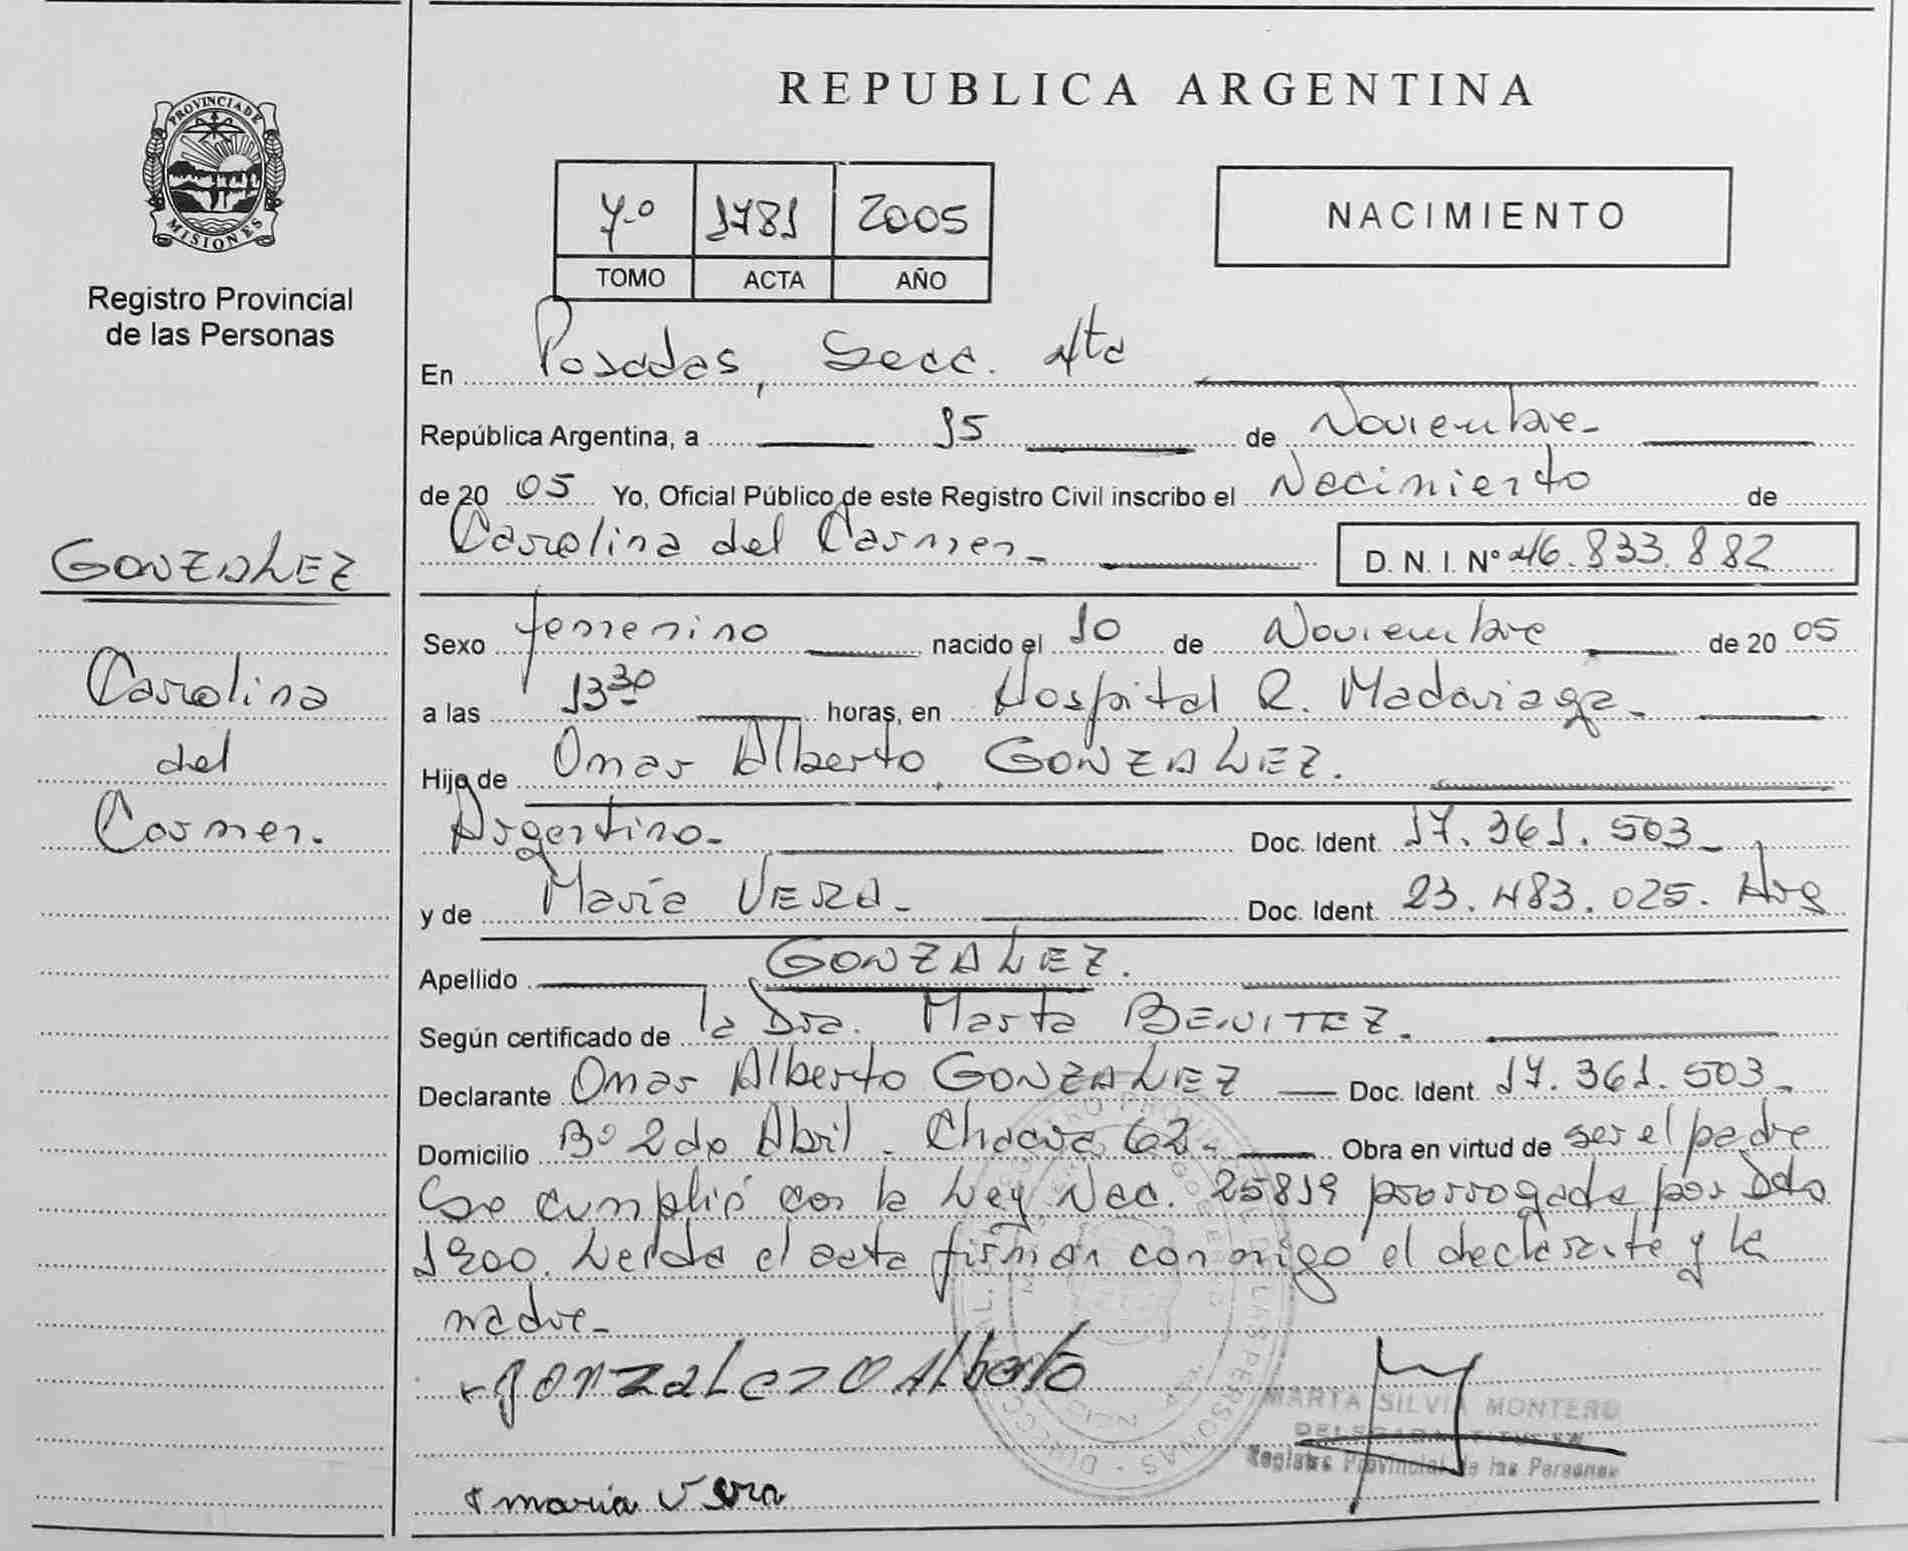 PROVINCIA DE
MISIONES
Registro Provincial
de las Personas
GONZALEZ
Carolina
del
Carmen.
REPUBLICA ARGENTINA
7º 1781 2005
TOMO ACTA AÑO
NACIMIENTO
En Posadas, Secc. 4ta
República Argentina, a 15 de Noviembre
de 20 05 Yo, Oficial Público de este Registro Civil inscribo el Nacimiento de
Carolina del Carmen D. N. I. Nº 46.833.882
Sexo femenino nacido el 10 de Noviembre de 20 05
a las 13 30 horas, en Hospital R. Madariaga
Hijo de Omar Alberto GONZALEZ.
Argentino Doc. Ident. 17.361.503
y de María VERA Doc. Ident. 23.483.025. Arg
Apellido GONZALEZ.
Según certificado de la Dra. Marta BENITEZ.
Declarante Omar Alberto GONZALEZ Doc. Ident. 17.361.503
Domicilio Bº 2 de Abril - Chacra 62 Obra en virtud de ser el padre
Se cumplió con la Ley Nac. 25819 prorrogada por Dto
1300. Leída el acta firman conmigo el declarante y la
madre
Gonzalez O Alberto
MARTA SILVIA MONTERO
Registro Provincial de las Personas
maria Vera